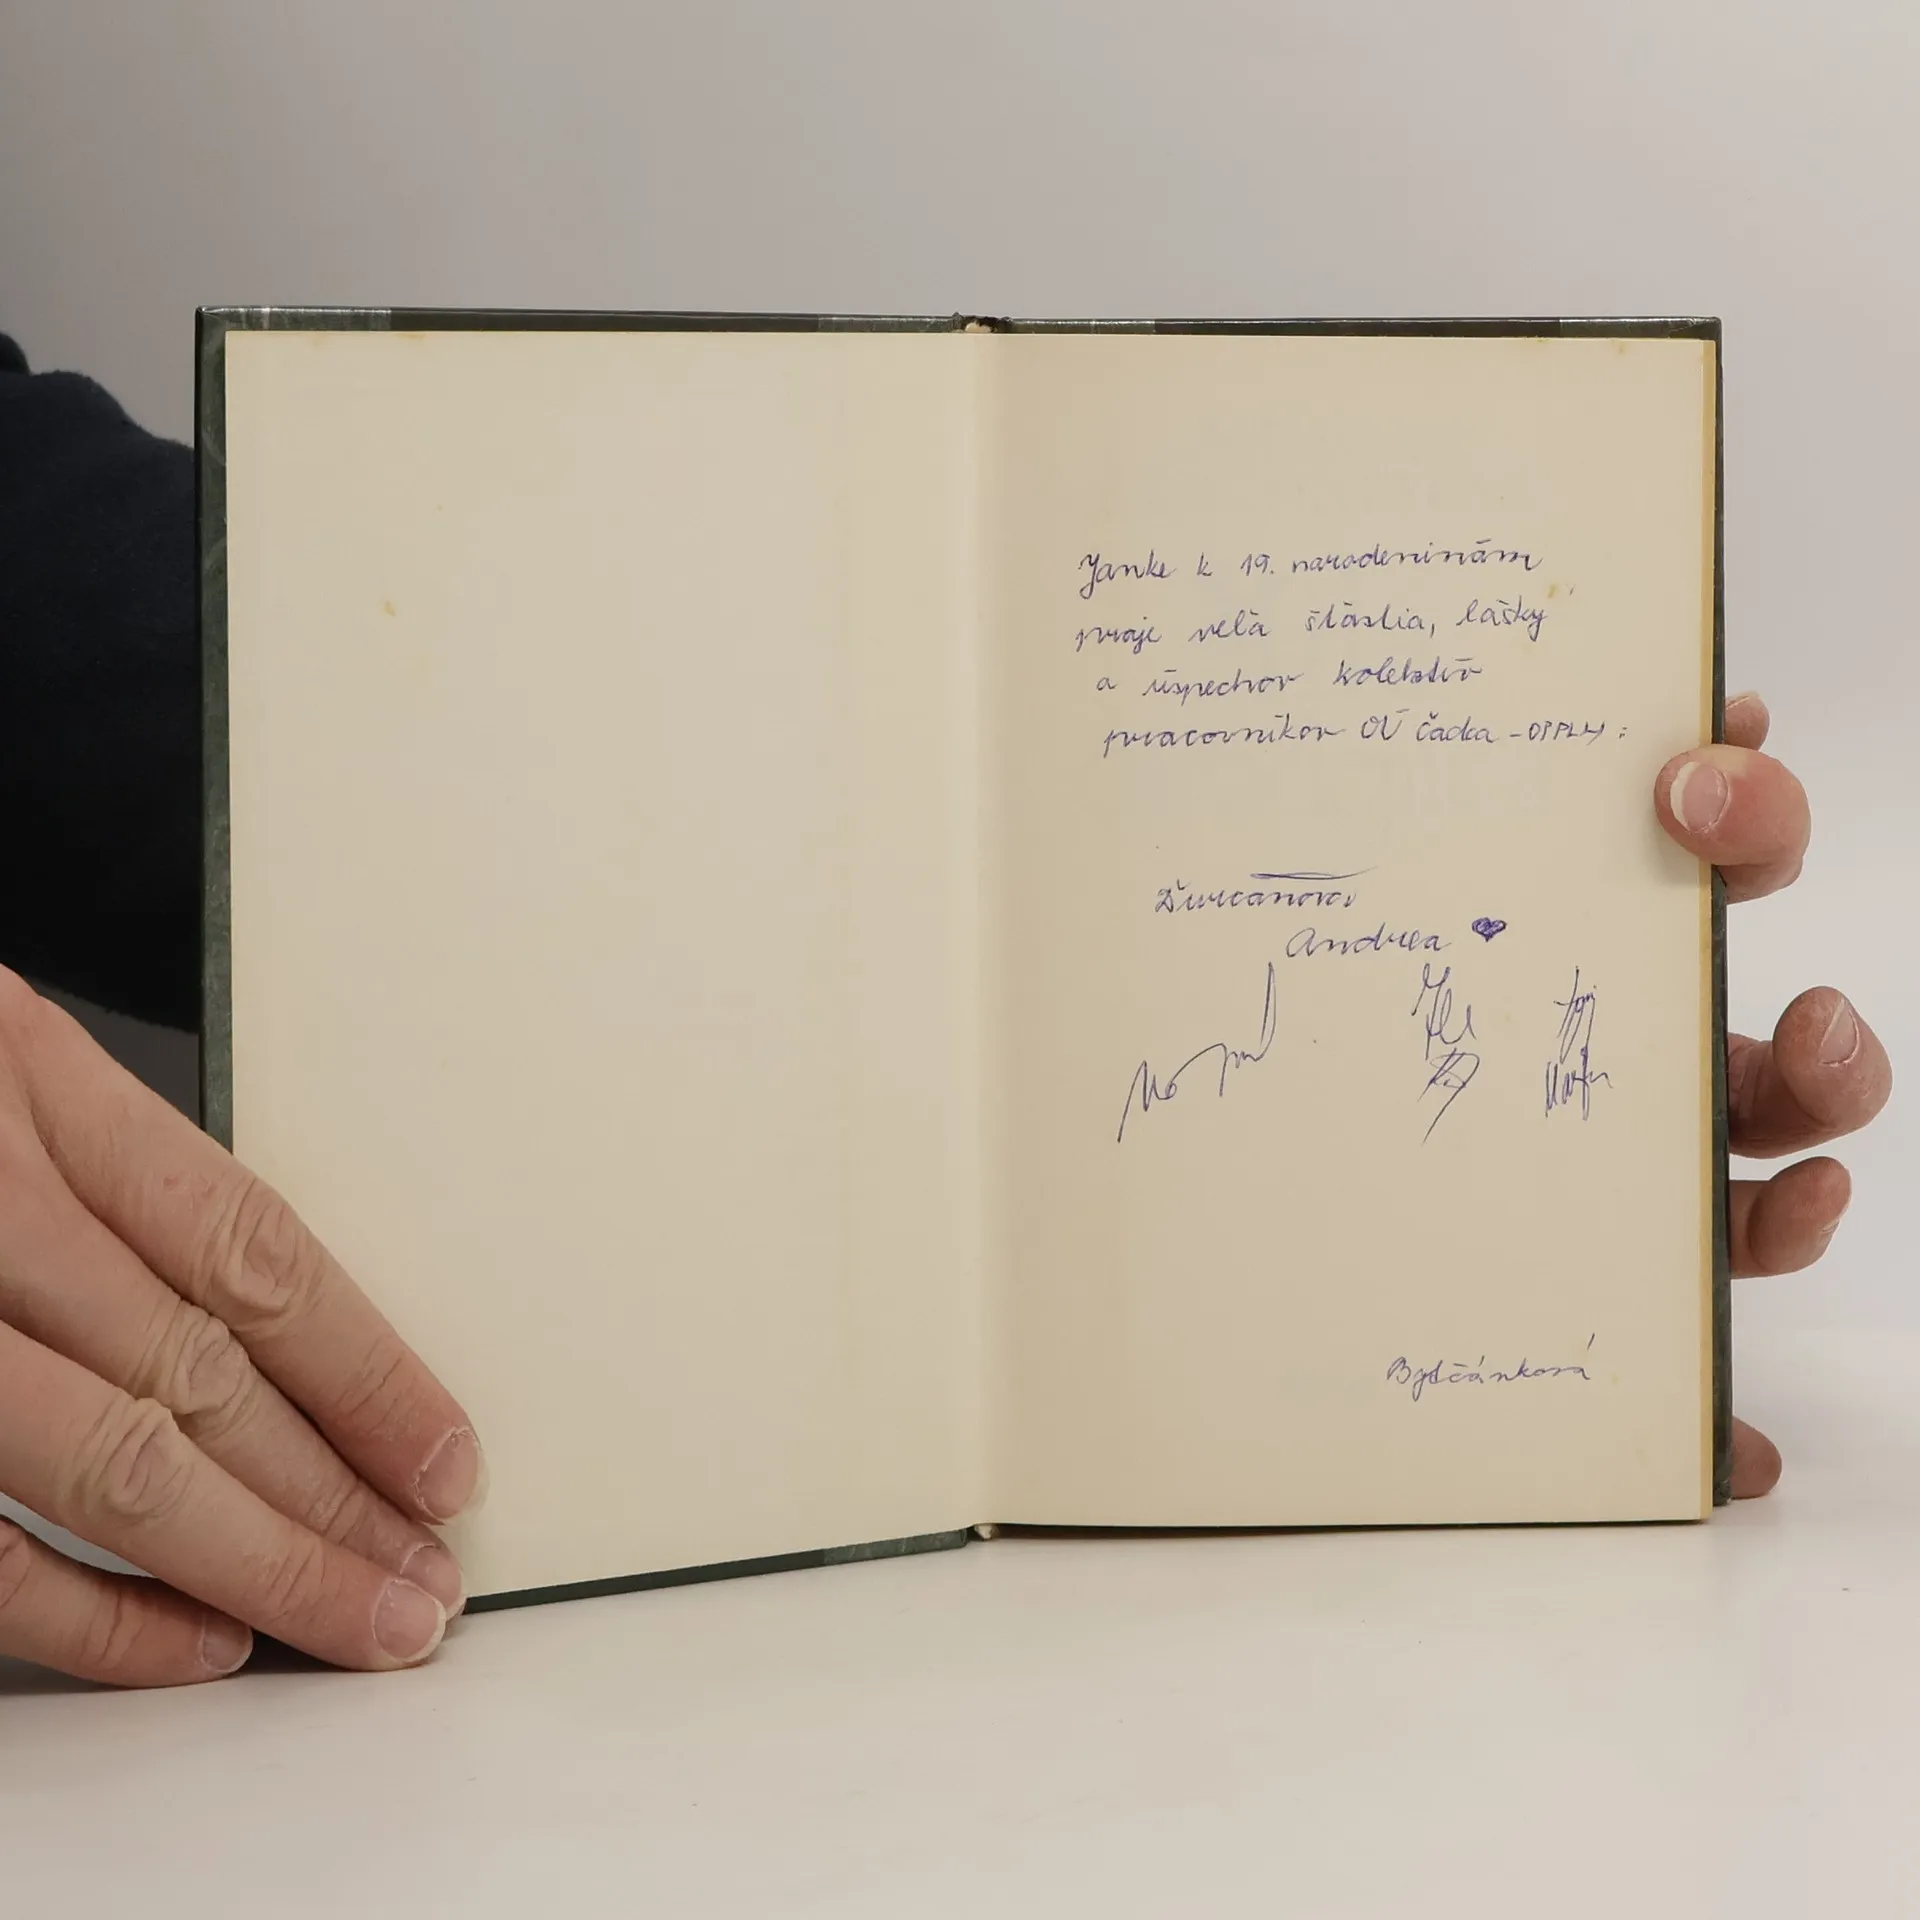 Janke k 19. narodeninám
praje veľa šťastia, lásky
a úspechov kolektív
pracovníkov OV Čadca -
Ďurčanová
Andrea
Bytčánková